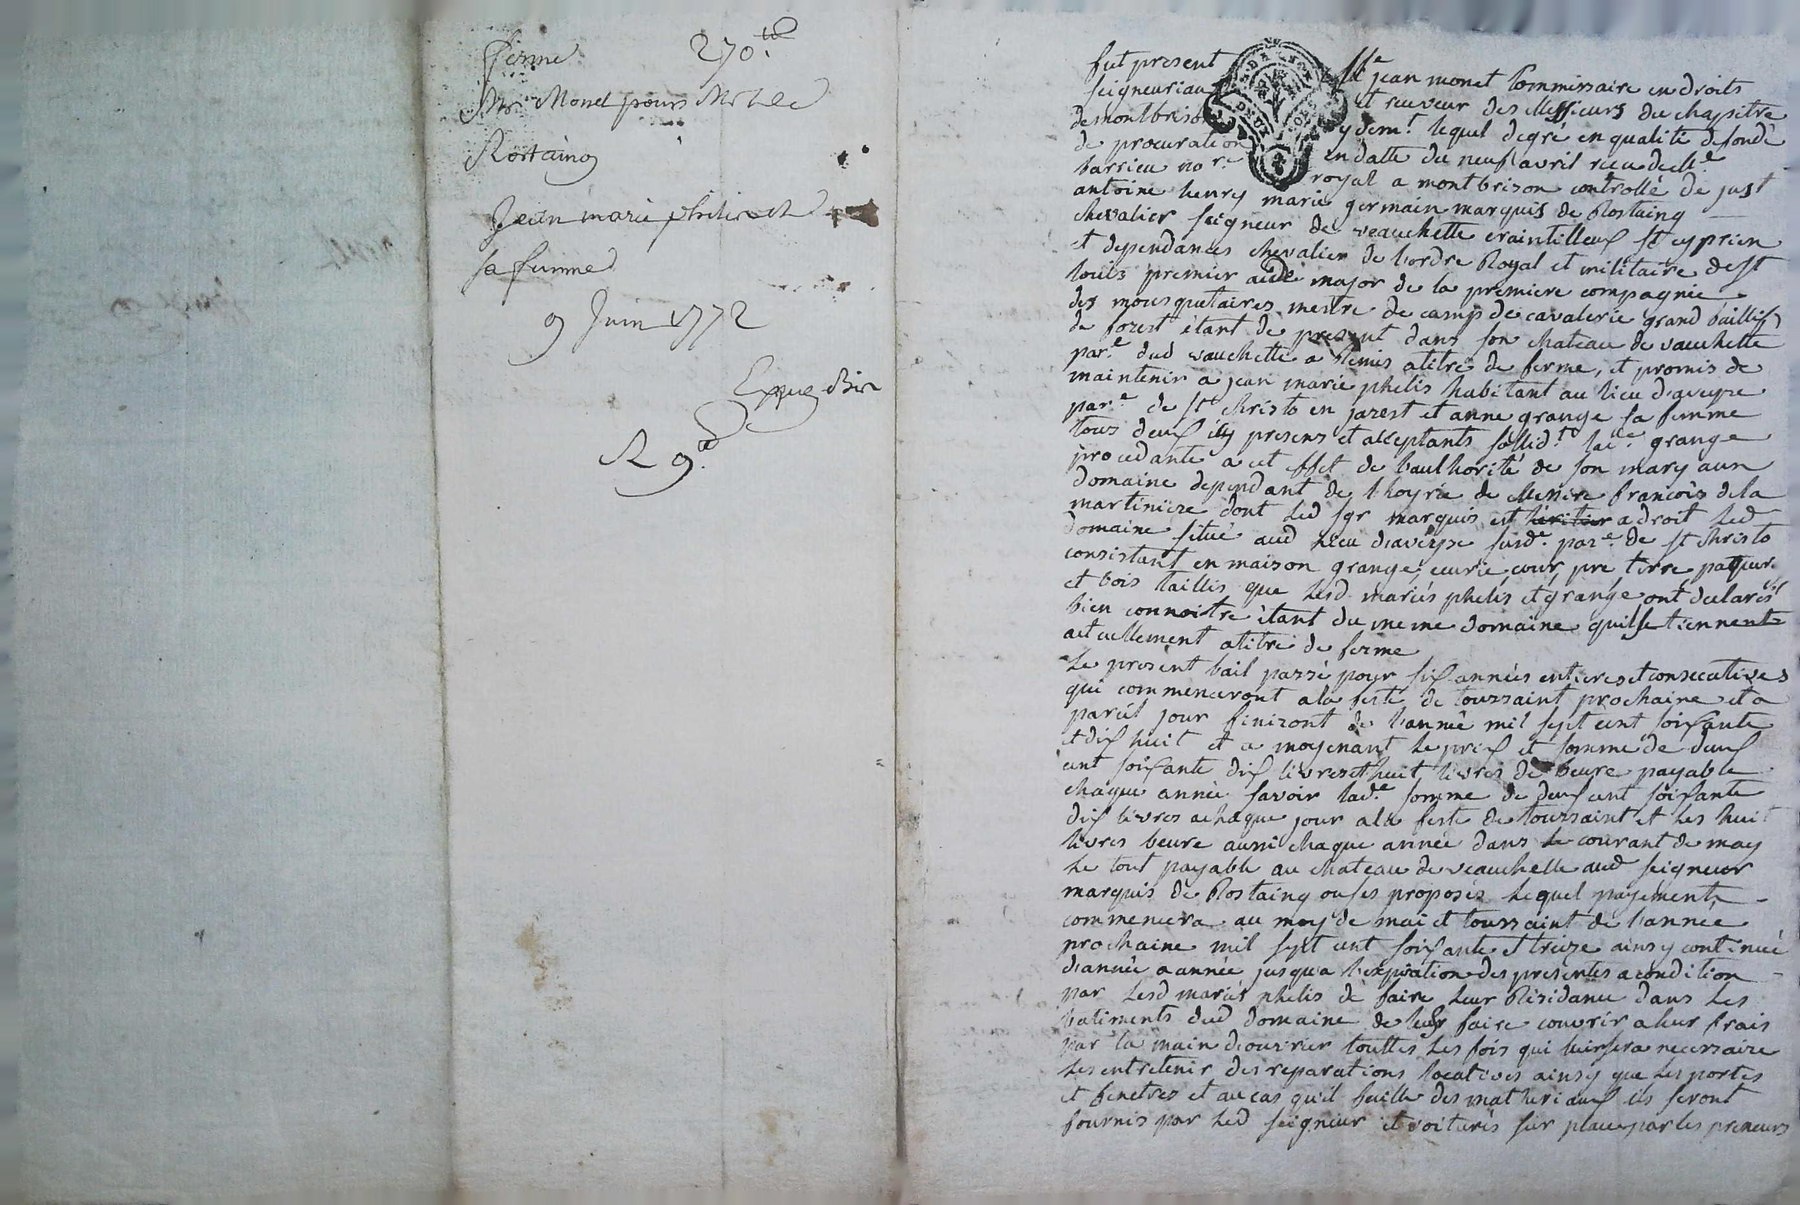 ferme 270 ₶
Mr Monet pour Mr Le
Rostaing
Jean marie phelis et
sa femme
9 Juin 1772
Expédiée
R 9 d
fut present Mre jean monet Commissaire en droits
seigneuriaux et receveur des Messieurs du chapitre
de montbrison y demt. lequel degré en qualité de fondé
de procuration en datte du neuf avril recu de Me
barrieu nore royal a montbrison controllé de just
antoine henry marie germain marquis de Rostaing
chevalier seigneur de veauchette craintilleux st cyprien
et dependances chevalier de l'ordre Royal et militaire de st
louis premier aide major de la premiere compagnie
des mousquetaires mestre de camp de cavalerie grand bailli
de forest étant de present dans son chateau de vauchette
pare dud vauchette a Remis a titre de ferme, et promis de
maintenir a jean marie phelis habitant au lieu d'aveyse
pare. de st Christo en jarest et anne grange sa femme
tous deux icy presens et acceptants sollidt. lade. grange
procedante a cet effet de l'authorité de son mary a un
domaine dependant de l'hoyrie de Messire francois de la
martiniere dont led sgr marquis est heritier a droit led
domaine situé aud lieu d'aveyse susde. pare. de st Christo
consistant en maison grange, ecurie, cour, pre terre paquier
et bois taillis que lesd mariés phelis et grange ont declarés
bien connoistre étant du meme domaine qu'ils tiennent
actuellement a titre de ferme
le present bail passé pour six années entieres et consecutives
qui commenceront a la feste de toussaint prochaine et a
pareil jour finiront de l'année mil sept cent soixante
et dix huit et a moyenant le prix et somme de deux
cent soixante dix livres et huit livres de beure payable
chaque année savoir lade somme de deux cent soixante
dix livres a chaque jour a la feste de toussaint et les huit
livres beure aussi chaque année dans le courant de may
le tout payable au chateau de veauchette aud seigneur
marquis de Rostaing ou ses proposés lequel payement
commencera au moy de mai et toussaint de l'année
prochaine mil sept cent soixante et treize ainsy continué
d'année a année jusqu'a l'expiration des presentes a condition
par lesd mariés phelis de faire leur Residance dans les
batiments dud domaine de les faire couvrir a leur frais
par la main d'ouvrier touttes les fois qui leur sera necessaire
les entretenir des reparations locatives ainsy que les portes
et fenetres et au cas qu'il faille des matheriaux ils seront
fournis par led seigneur et voiturés sur place par les preneurs